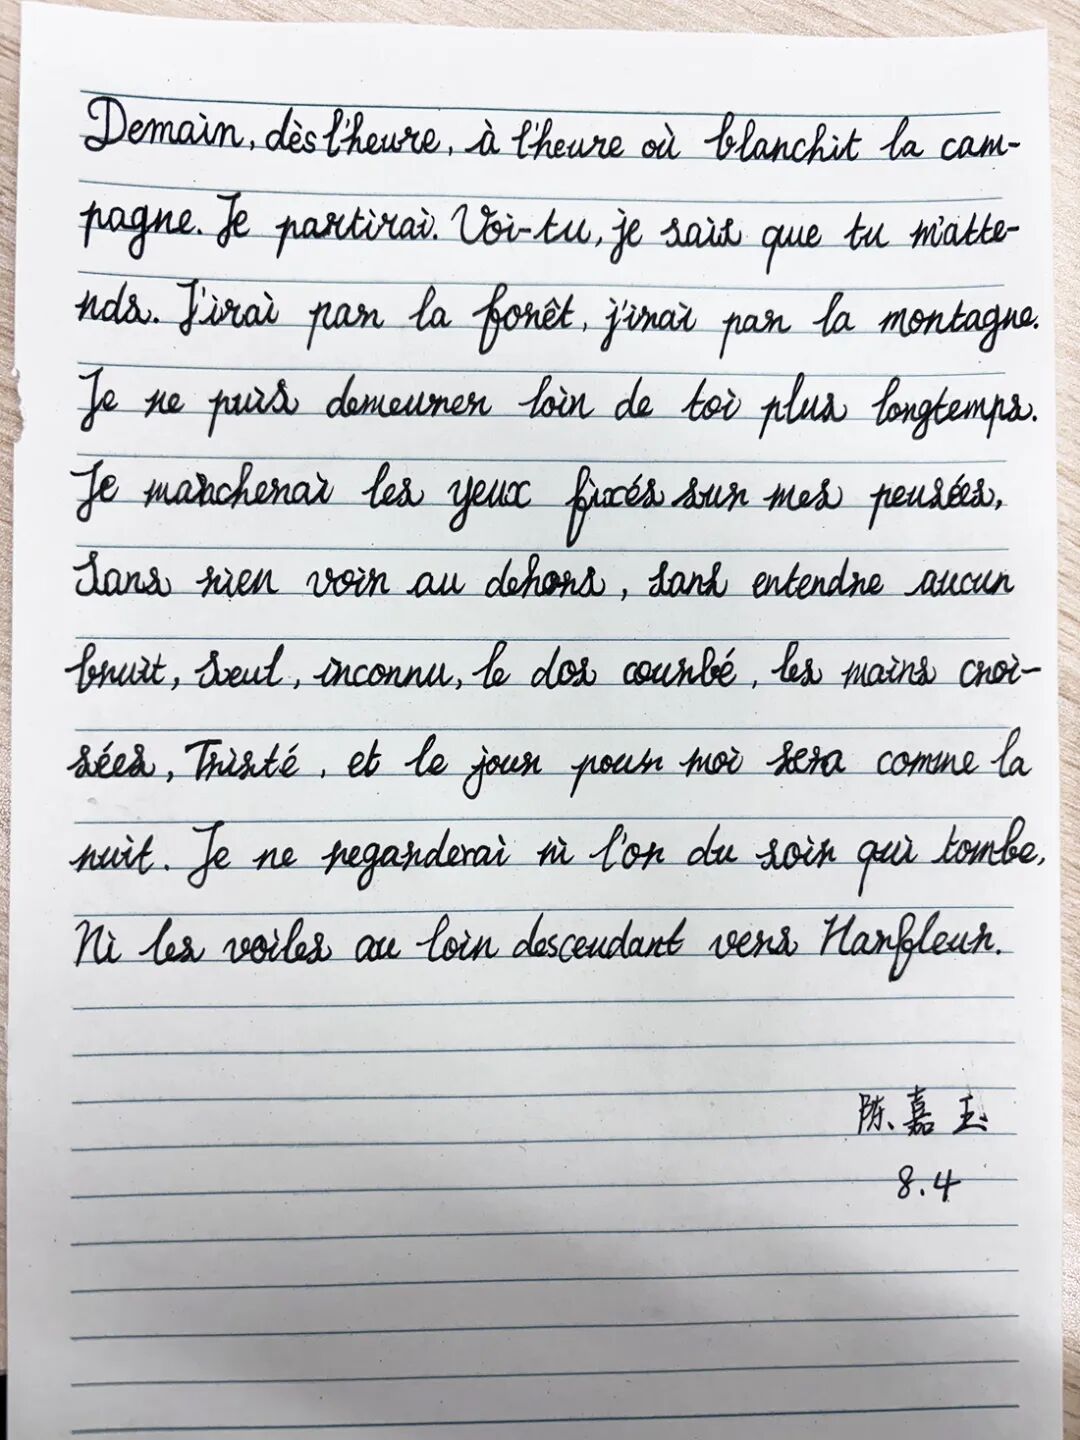 Demain, dès l'heure, à l'heure où blanchit la cam-
pagne. Je partirai. Voi-tu, je sais que tu m'atte-
nds. J'irai par la forêt, j'irai par la montagne.
Je ne puis demeurer loin de toi plus longtemps.
Je marcherai les yeux fixés sur mes pensées,
Sans rien voir au dehors, sans entendre aucun
bruit, seul, inconnu, le dos courbé, les mains croi-
sées, Tristé, et le jour pour moi sera comme la
nuit. Je ne regarderai ni l'or du soir qui tombe,
Ni les voiles au loin descendant vers Harfleur.
陈嘉玉
8.4